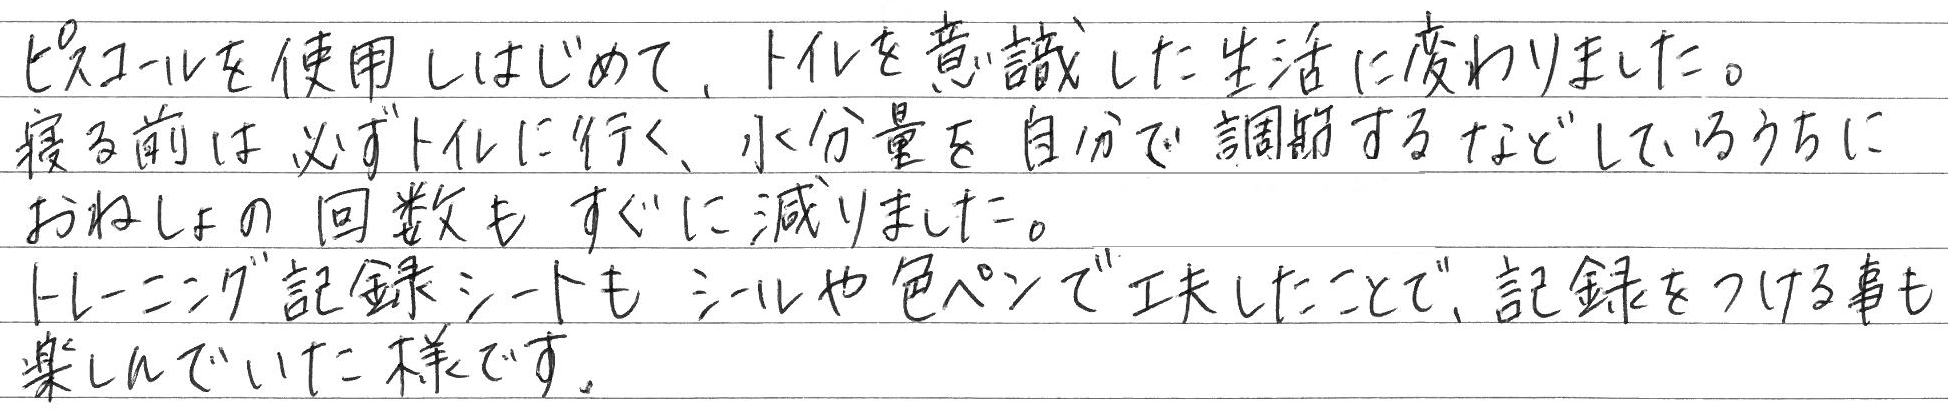 ピスコールを使用しはじめて、トイレを意識した生活に変わりました。
寝る前は必ずトイレに行く、水分量を自分で調節するなどしているうちに
おねしょの回数もすぐに減りました。
トレーニング記録シートもシールや色ペンで工夫したことで、記録をつける事も
楽しんでいた様です。